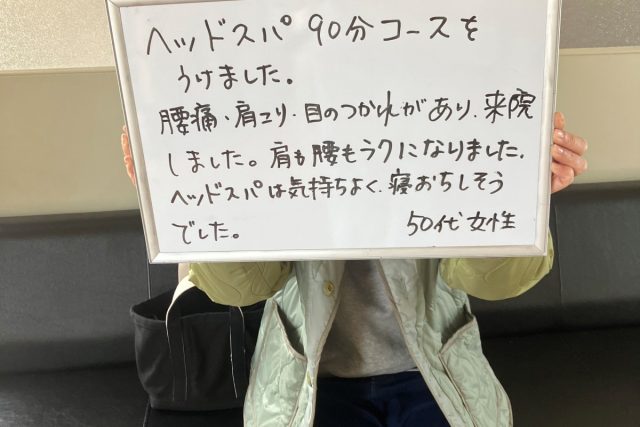 ヘッドスパ 90分コースを
うけました。
腰痛・肩こり・目のつかれがあり、来院
しました。肩も腰もラクになりました。
ヘッドスパは気持ちよく、寝おちしそう
でした。 50代 女性